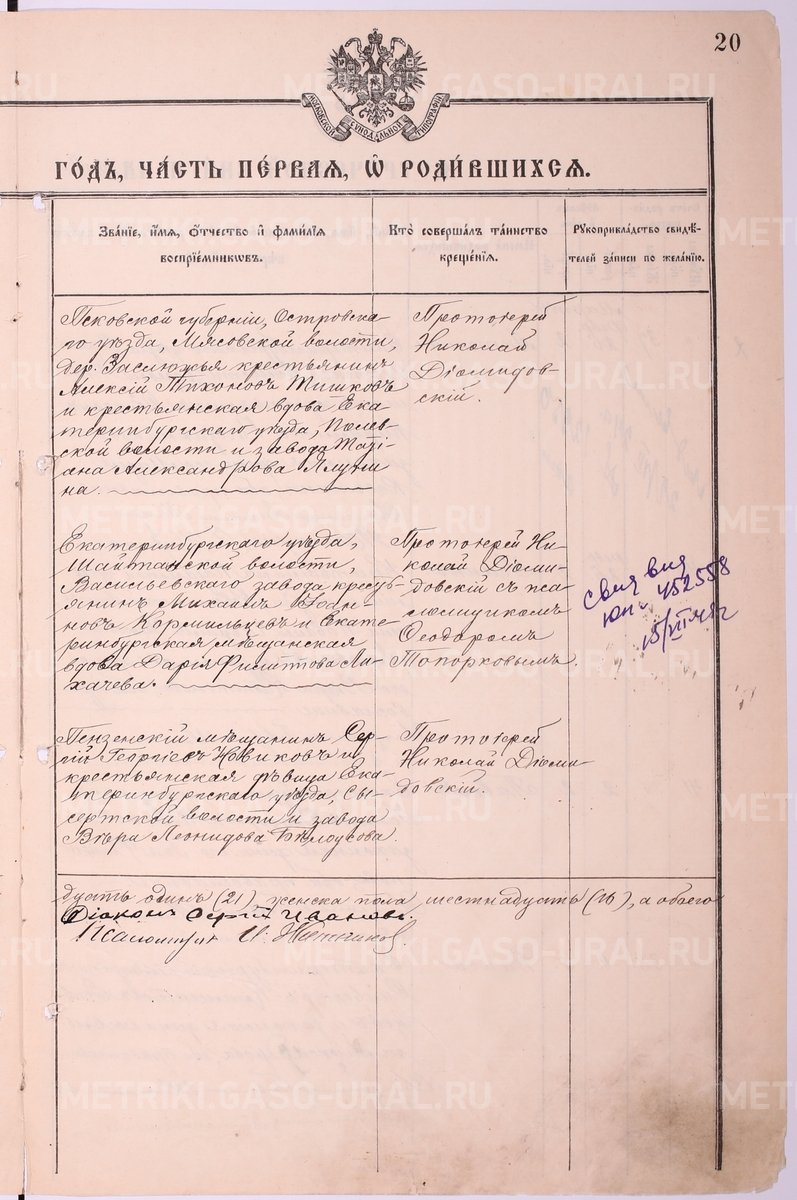 20
МОСКОВСКОЙ СѴНОДАЛЬНОЙ ТИПОГРАФІИ
ГО́ДЪ, ЧА́СТЬ ПЕ́РВАЯ, Ѡ҆ РОДИ́ВШИХСЯ.
Зва́нїе, и҆́мя, ѻ҆́тчество и҆ фами́лїя
воспрїе́мниковъ.
Кто̀ соверша́лъ та́инство
креще́нїя.
Рꙋкоприкла́дство свидѣ́-
телей за́писи по жела́нїю.
Псковской губерніи, Островска-
го уѣзда, Мясовской волости,
дер. Заслюжья крестьянинъ
Алексій Тихоновъ Тишковъ
и крестьянская вдова Ека-
теринбургскаго уѣзда, Полев-
ской волости и завода Таті-
ана Александрова
на.
Протоіерей
Николай
Діомидов-
скій.
Екатеринбургскаго уѣзда,
Шайтанской волости,
Васильевскаго завода кресть-
янинъ Михаилъ Іоан-
новъ Кормильцевъ и Екате-
ринбургская мѣщанская
вдова Дарія Филиппова Ли-
хачева.
Протоіерей Ни-
колай Діоми-
довскій съ пса-
ломщикомъ
Ѳеодоромъ
Топорковымъ.
юп № 452558
15/VII 48 г
Пензенскій мѣщанинъ Сер-
гій Георгіевъ Новиковъ и
крестьянская дѣвица Ека-
теринбургскаго уѣзда, Сы-
сертской волости и завода
Вѣра Леонидова Бѣлоусова.
Протоіерей
Николай Діоми-
довскій.
дцать одинъ (21), женска пола шестнадцать (16), а обоего
Діаконъ Сергій Ивановъ.
Псаломщик И.
METRIKI.GASO-URAL.RU